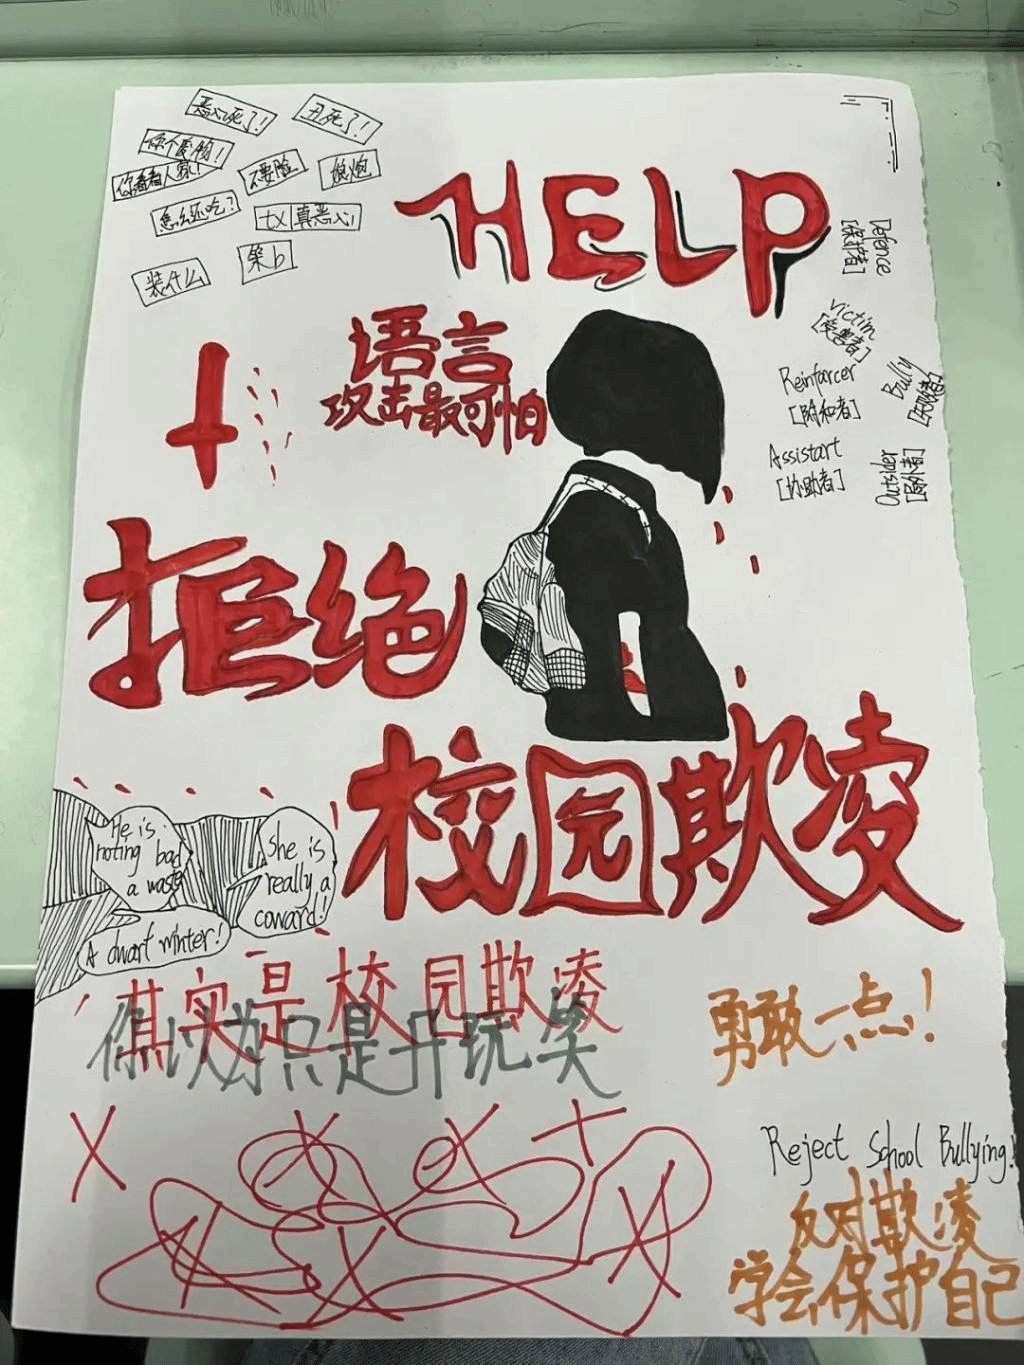 恶心死了!
丑死了!
你个废物!
你看看人家!
不要脸
娘炮
怎么还吃?
真恶心!
装什么
HELP
Defence
[保护者]
Victim
[受害者]
Reinfarcer
[附和者]
Bully
Assistart
[协助者]
Outsider
[局外者]
语言
攻击最可怕
拒绝
校园欺凌
He is
noting bad
a waste
She is
really a
coward!
A dwarf winter!
其实是校园欺凌
你以为只是开玩笑
勇敢一点!
Reject School Bullying!
反对欺凌
学会保护自己